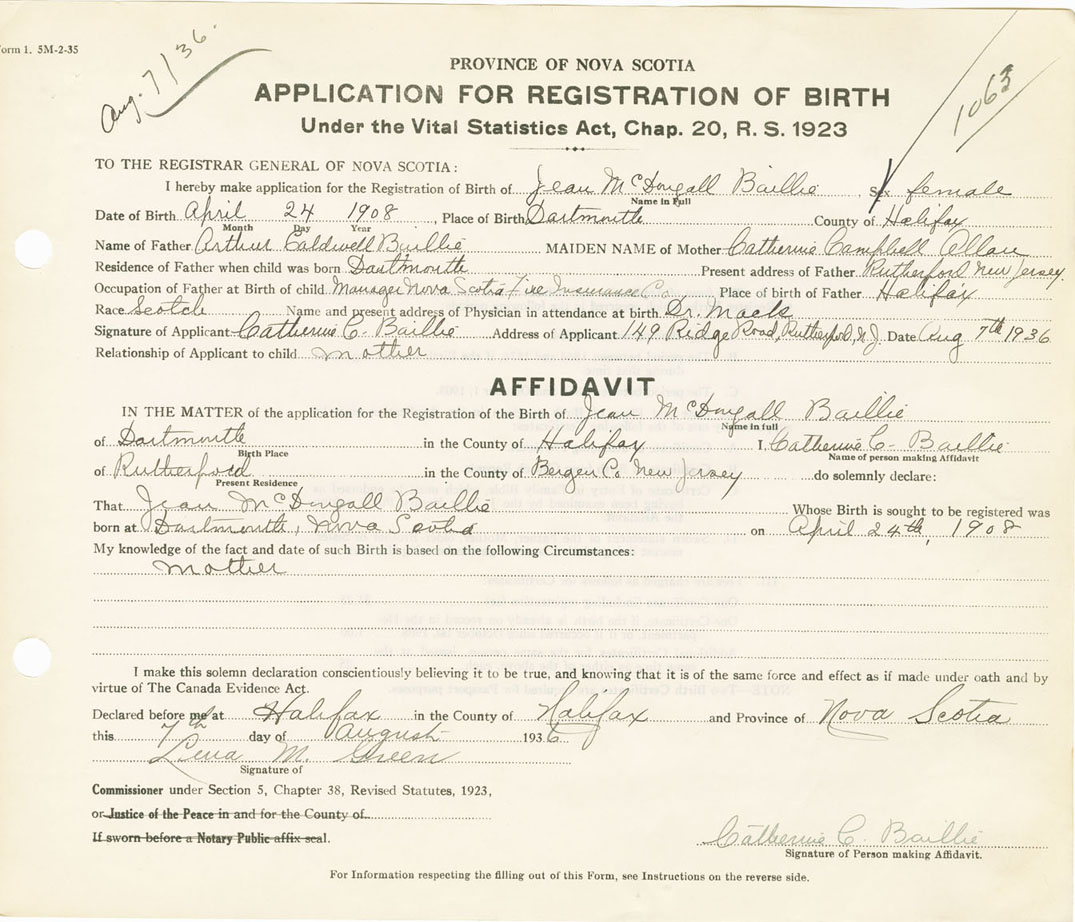 Form 1. 5M-2-35
Aug. 7/36.
1063
PROVINCE OF NOVA SCOTIA
APPLICATION FOR REGISTRATION OF BIRTH
Under the Vital Statistics Act, Chap. 20, R. S. 1923
TO THE REGISTRAR GENERAL OF NOVA SCOTIA:
I hereby make application for the Registration of Birth of Jean McDougall Baillie, Sex female
Name in Full
Date of Birth April 24 1908, Place of Birth Dartmouth County of Halifax
Month Day Year
Name of Father Arthur Caldwell Baillie MAIDEN NAME of Mother Catherine Campbell Allan
Residence of Father when child was born Dartmouth Present address of Father Rutherford New Jersey.
Occupation of Father at Birth of child Manager Nova Scotia Fire Insurance Co. Place of birth of Father Halifax
Race Scotch Name and present address of Physician in attendance at birth Dr. Mack
Signature of Applicant Catherine C. Baillie Address of Applicant 149 Ridge Road, Rutherford, N.J. Date Aug 7th 1936
Relationship of Applicant to child mother
AFFIDAVIT
IN THE MATTER of the application for the Registration of the Birth of Jean McDougall Baillie
Name in full
of Dartmouth in the County of Halifax I, Catherine C. Baillie
Birth Place Name of person making Affidavit
of Rutherford in the County of Bergen Co New Jersey do solemnly declare:
Present Residence
That Jean McDougall Baillie Whose Birth is sought to be registered was
born at Dartmouth, Nova Scotia on April 24th, 1908
My knowledge of the fact and date of such Birth is based on the following Circumstances:
mother
I make this solemn declaration conscientiously believing it to be true, and knowing that it is of the same force and effect as if made under oath and by
virtue of The Canada Evidence Act.
Declared before me at Halifax in the County of Halifax and Province of Nova Scotia
this 7th day of August 1936
Lena M. Green
Signature of
Commissioner under Section 5, Chapter 38, Revised Statutes, 1923,
or Justice of the Peace in and for the County of
If sworn before a Notary Public affix seal.
Catherine C. Baillie
Signature of Person making Affidavit.
For Information respecting the filling out of this Form, see Instructions on the reverse side.